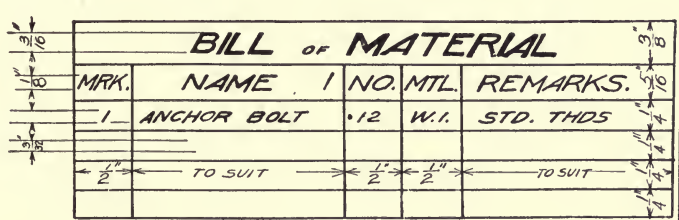 BILL OF MATERIAL
MRK. NAME NO. MTL. REMARKS.
1 ANCHOR BOLT 12 W.I. STD. THDS
1/2" TO SUIT 1/2" 1/2" TO SUIT
3/16"
1/8"
3/32"
3/8"
5/16"
1/4"
1/4"
1/4"
1/4"